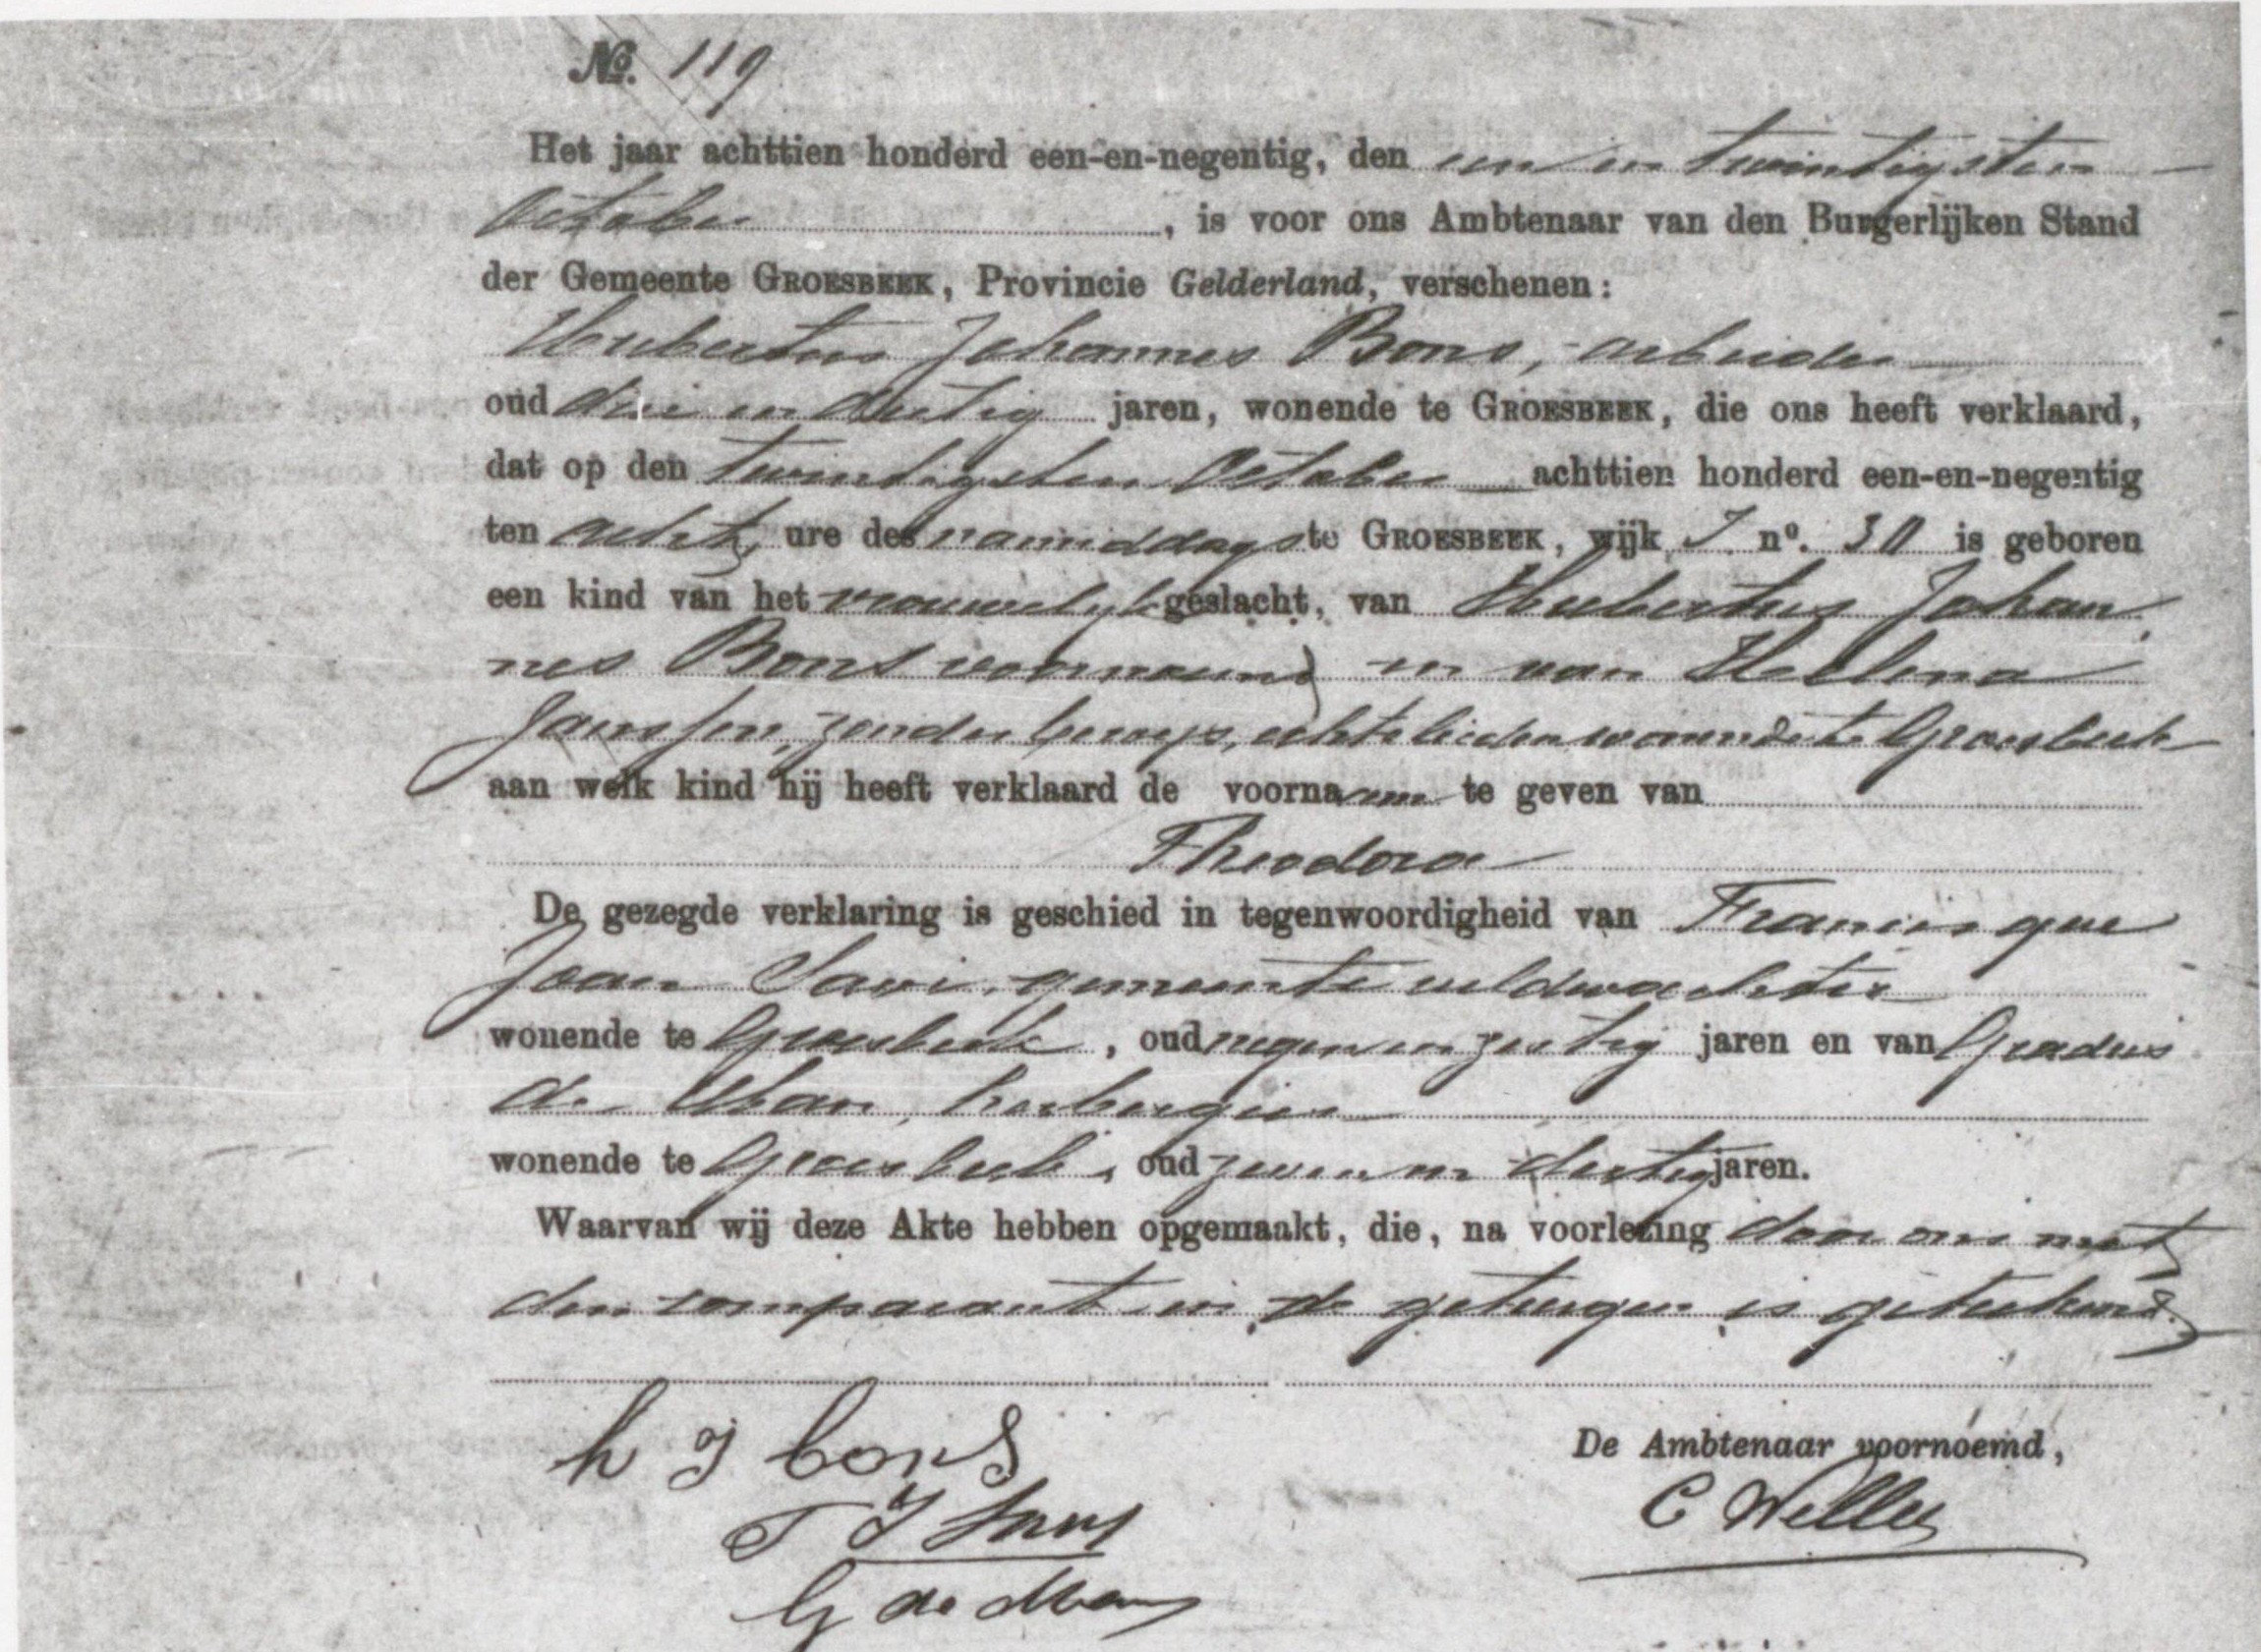 No. 119
Het jaar achttien honderd een-en-negentig, den een en twintigsten
October, is voor ons Ambtenaar van den Burgerlijken Stand
der Gemeente GROESBEEK, Provincie Gelderland, verschenen:
Hubertus Johannes Bons, arbeider
oud drie en dertig jaren, wonende te GROESBEEK, die ons heeft verklaard,
dat op den twintigsten October achttien honderd een-en-negentig
ten acht ure des namiddags te GROESBEEK, wijk J no. 30 is geboren
een kind van het vrouwelijk geslacht, van Hubertus Johan
nes Bons voornoemd en van Hellena
Janssen, zonder beroep, echtelieden wonende te Groesbeek
aan welk kind hij heeft verklaard de voornaam te geven van
Theodora
De gezegde verklaring is geschied in tegenwoordigheid van Francisque
Jean, gemeente veldwachter
wonende te Groesbeek, oud negen en zestig jaren en van Gradus
de Man, herbergier
wonende te Groesbeek, oud zeven en dertig jaren.
Waarvan wij deze Akte hebben opgemaakt, die, na voorlezing door ons met
den comparant en de getuigen is geteekend.
h J bons
De Ambtenaar voornoemd,
G de Man